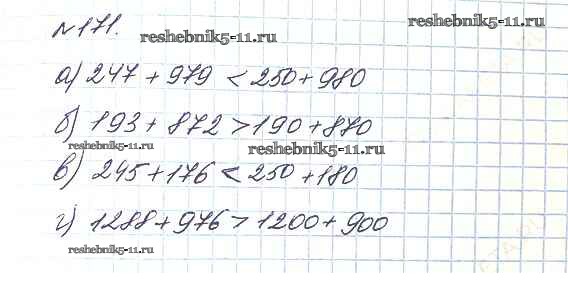 №171.
reshebnik5-11.ru
reshebnik5-11.ru
а) 247 + 979 < 250 + 980
б) 193 + 872 > 190 + 870
reshebnik5-11.ru
reshebnik5-11.ru
в) 245 + 176 < 250 + 180
г) 1288 + 976 > 1200 + 900
reshebnik5-11.ru